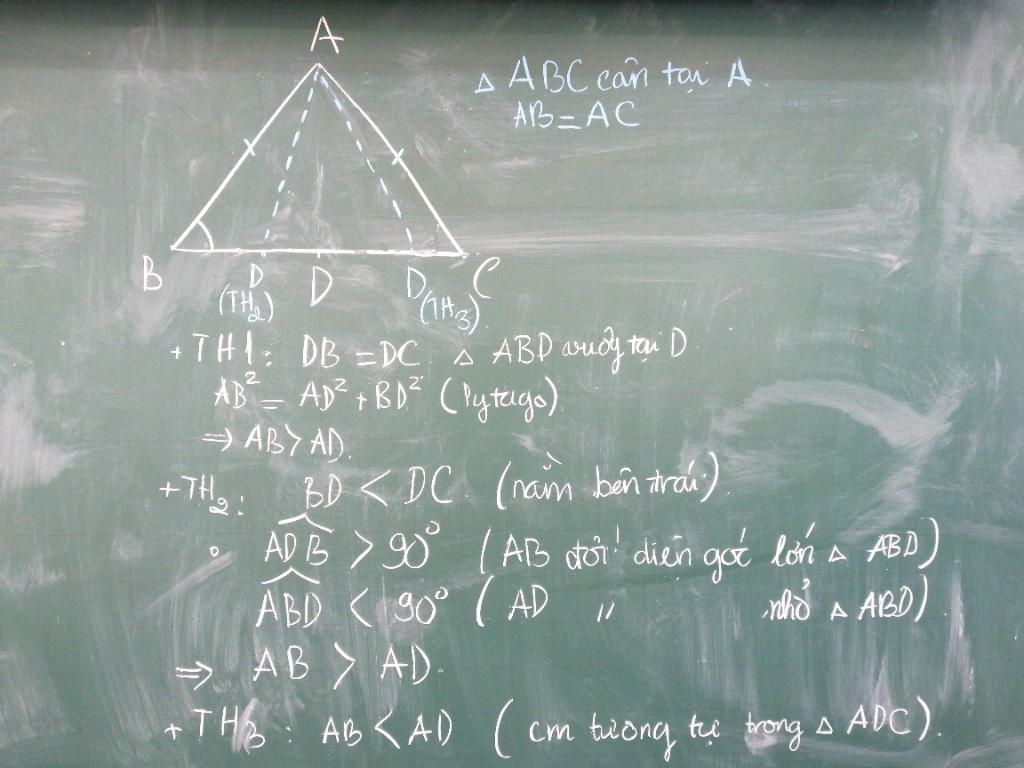 A
△ ABC cân tại A.
AB = AC
B D D D C
(TH2) (TH3)
+ TH1: DB = DC △ ABD vuông tại D.
AB² = AD² + BD² (Pytago)
⇒ AB > AD.
+ TH2: BD < DC. (nằm bên trái)
∘ \widehat{ADB} > 90° (AB đối diện góc lớn △ ABD)
\widehat{ABD} < 90° (AD〃 nhỏ △ ABD)
⇒ AB > AD.
+ TH3: AB < AD (cm tương tự trong △ ADC).